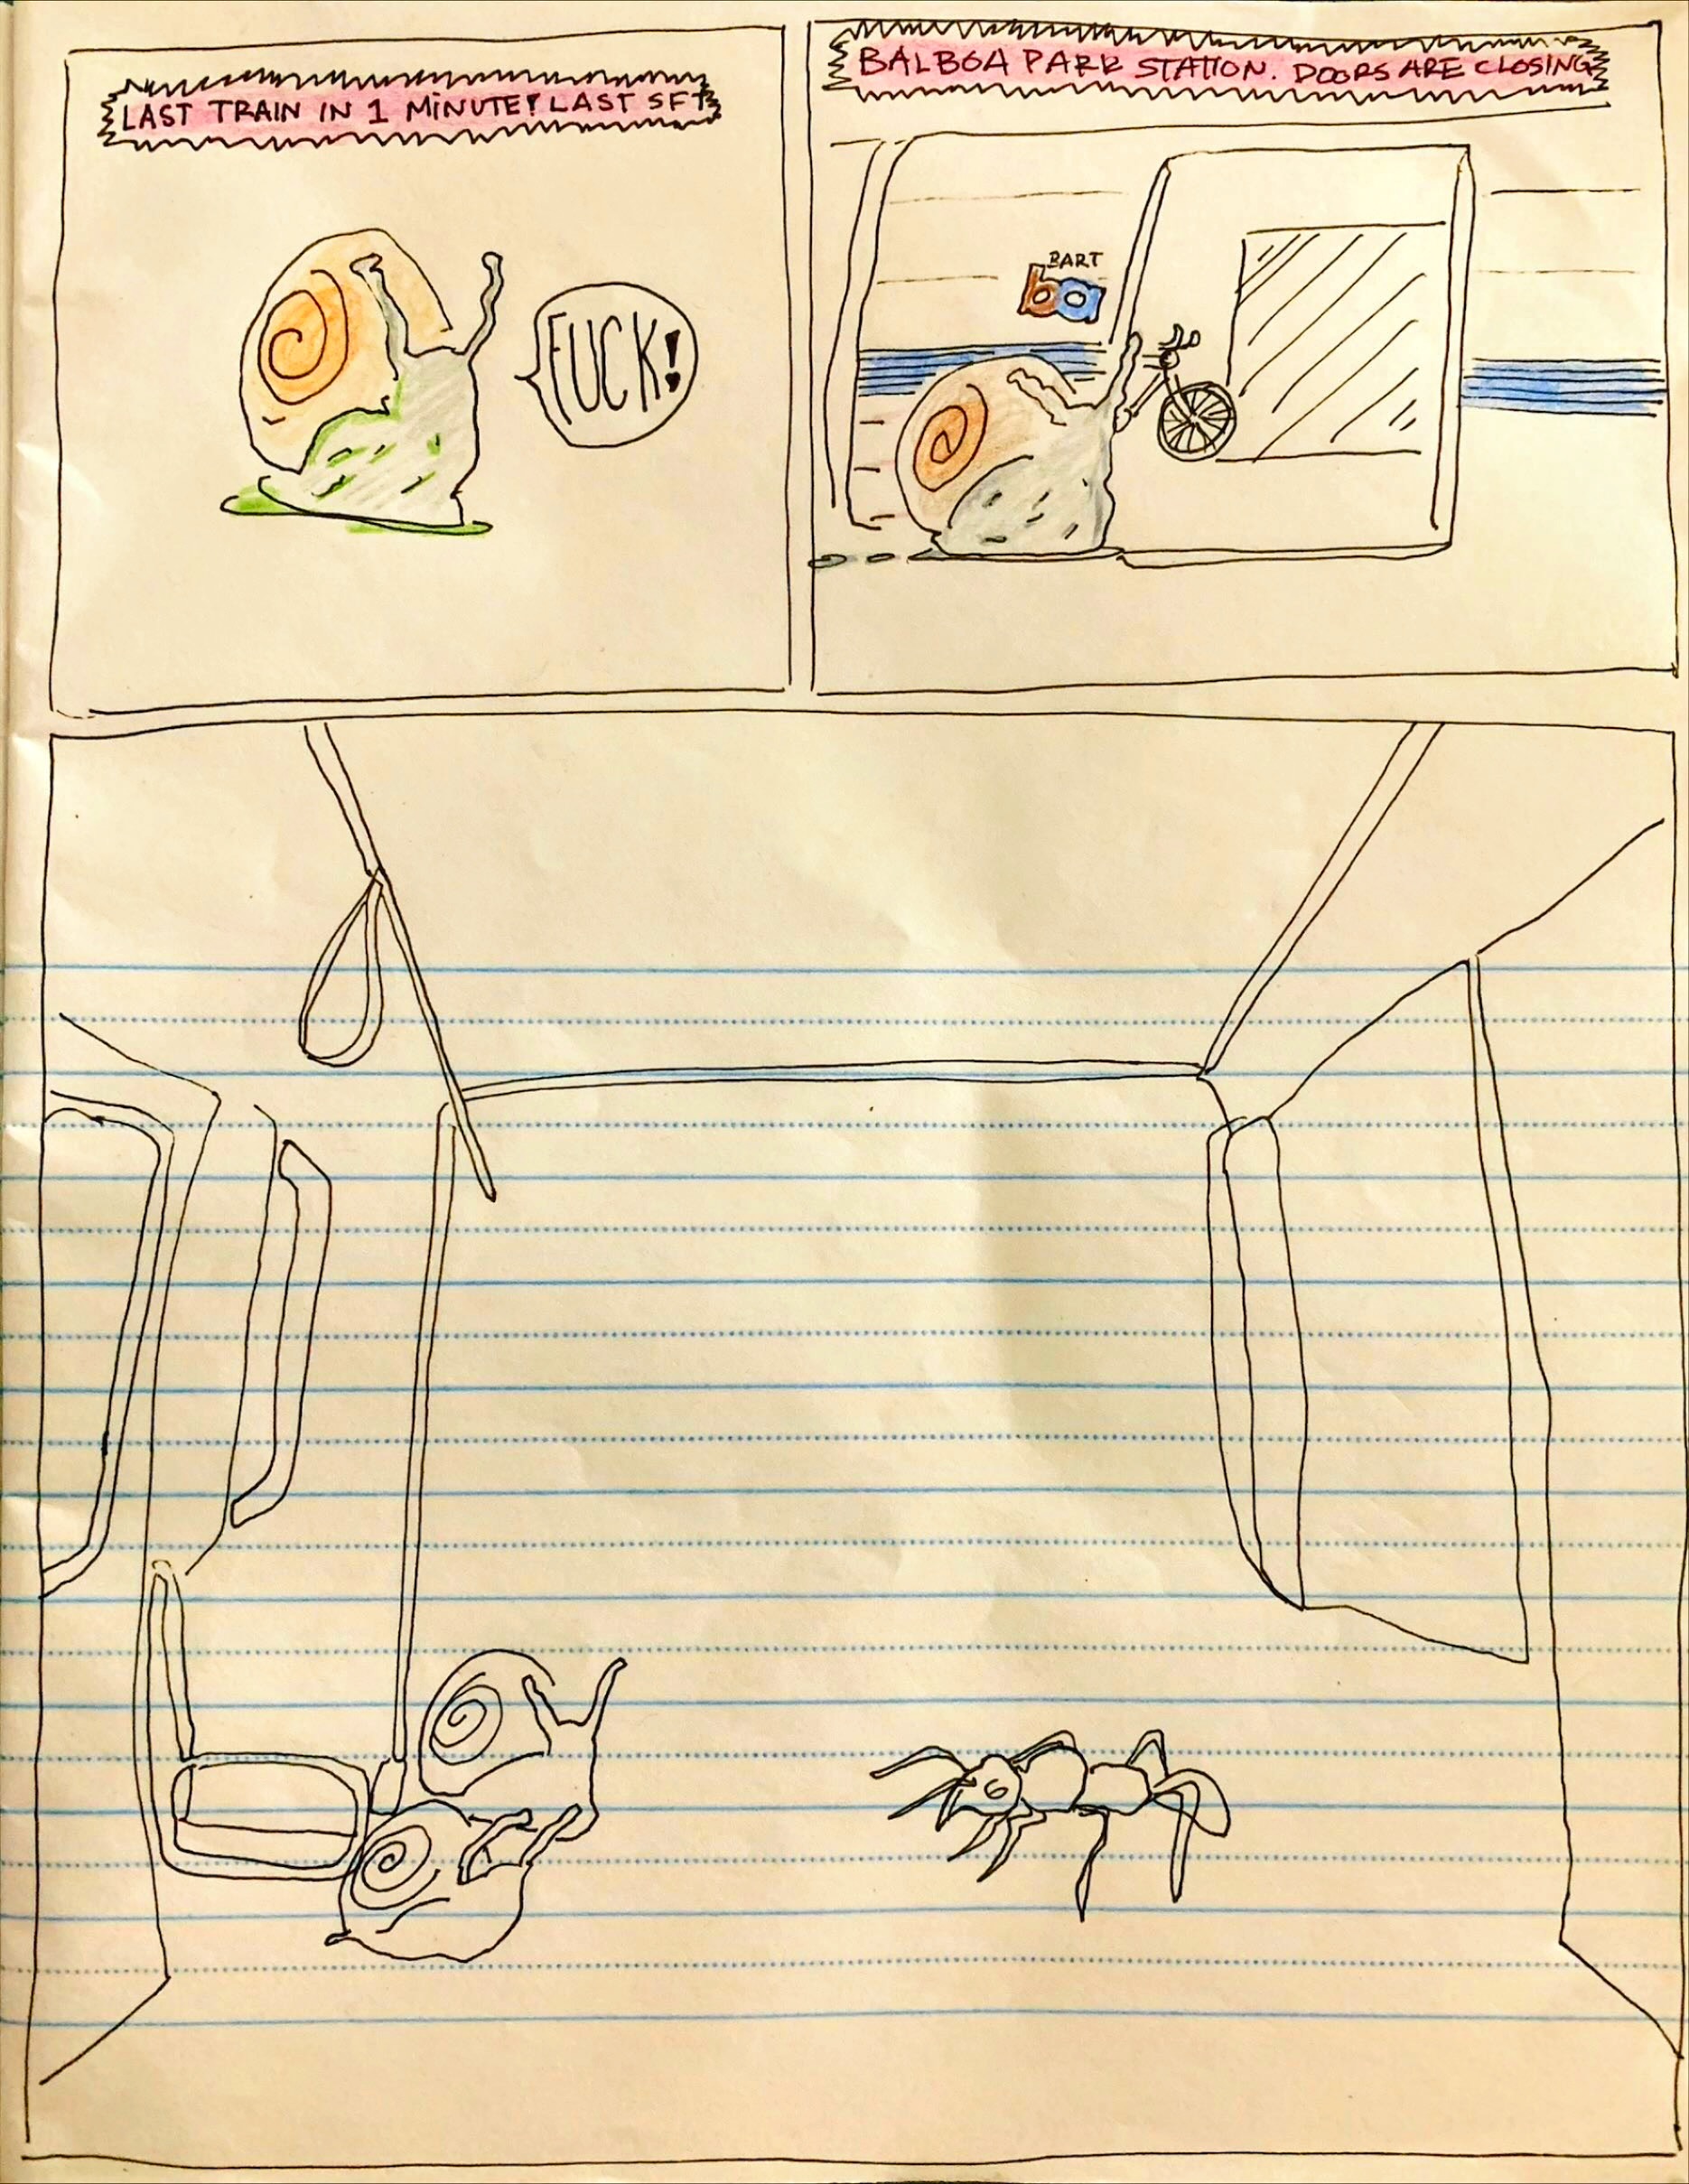 LAST TRAIN IN 1 MINUTE! LAST SFT
FUCK!
BALBOA PARK STATION. DOORS ARE CLOSING
BART
ba